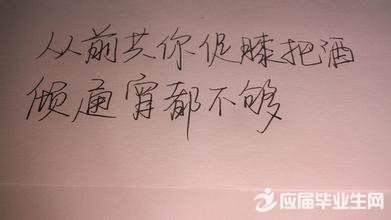 从前共你促膝把酒
倾通宵都不够
应届毕业生网